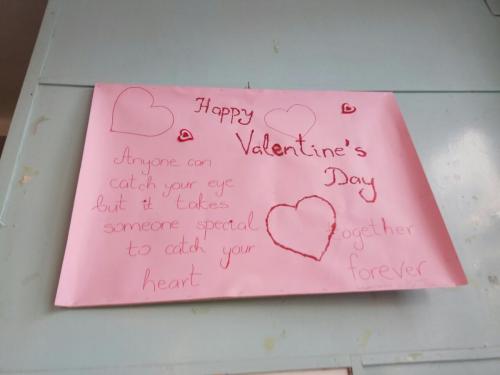 Happy
Valentine's
Day
Anyone can
catch your eye
but it takes
someone special
to catch your
heart
together
forever